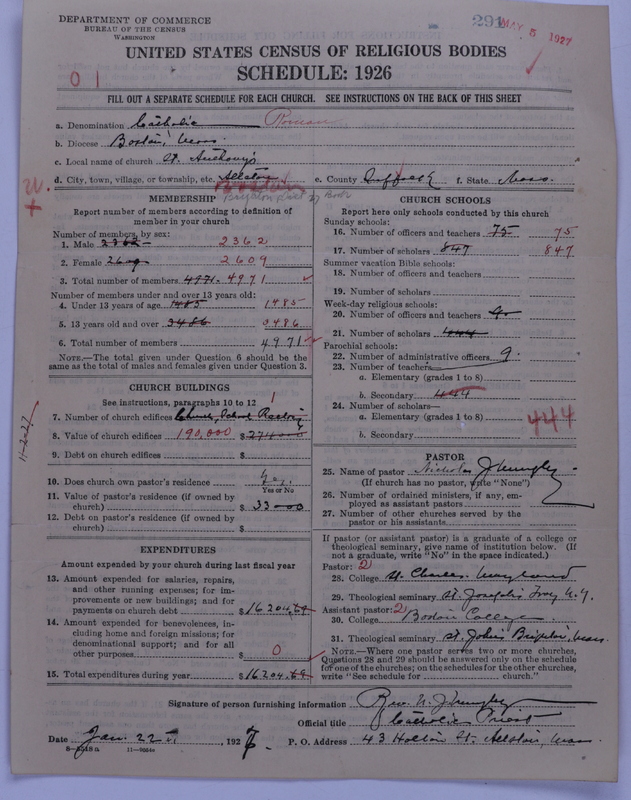 DEPARTMENT OF COMMERCE
BUREAU OF THE CENSUS
WASHINGTON
291
MAY 5 1927
UNITED STATES CENSUS OF RELIGIOUS BODIES
SCHEDULE: 1926
0 1
FILL OUT A SEPARATE SCHEDULE FOR EACH CHURCH. SEE INSTRUCTIONS ON THE BACK OF THIS SHEET
a. Denomination Catholic Roman
b. Diocese Boston, Mass.
c. Local name of church St. Anthony's
d. City, town, village, or township, etc. Allston e. County Suffolk f. State Mass.
Boston
MEMBERSHIP
Report number of members according to definition of member in your church
Number of members, by sex:
1. Male 2362 2362
2. Female 2609 2609
3. Total number of members 4971 4971
Number of members under and over 13 years old:
4. Under 13 years of age 1485 1485
5. 13 years old and over 3486 3486
6. Total number of members 4971
NOTE.—The total given under Question 6 should be the same as the total of males and females given under Question 3.
CHURCH BUILDINGS
See instructions, paragraphs 10 to 12
1
7. Number of church edifices Church, School Rectory
8. Value of church edifices 190,000 $
9. Debt on church edifices $
10. Does church own pastor's residence Yes.
Yes or No
11. Value of pastor's residence (if owned by church) $ 33000
12. Debt on pastor's residence (if owned by church) $
11-20-27
EXPENDITURES
Amount expended by your church during last fiscal year
13. Amount expended for salaries, repairs, and other running expenses; for improvements or new buildings; and for payments on church debt $16204.69
14. Amount expended for benevolences, including home and foreign missions; for denominational support; and for all other purposes $ 0
15. Total expenditures during year $16204.69
CHURCH SCHOOLS
Report here only schools conducted by this church
Sunday schools:
16. Number of officers and teachers 75 75
17. Number of scholars 847 847
Summer vacation Bible schools:
18. Number of officers and teachers
19. Number of scholars
Week-day religious schools:
20. Number of officers and teachers
21. Number of scholars 444
Parochial schools:
22. Number of administrative officers 9.
23. Number of teachers—
a. Elementary (grades 1 to 8)
b. Secondary 444
24. Number of scholars—
a. Elementary (grades 1 to 8) 444
b. Secondary
PASTOR
25. Name of pastor Nicholas J
(If church has no pastor, write "None")
26. Number of ordained ministers, if any, employed as assistant pastors
27. Number of other churches served by the pastor or his assistants
If pastor (or assistant pastor) is a graduate of a college or theological seminary, give name of institution below. (If not a graduate, write "No" in the space indicated.)
Pastor: 2
28. College St. Charles, Maryland
29. Theological seminary St. Josephs Troy N.Y.
Assistant pastor: 2
30. College Boston College
31. Theological seminary St. Johns Brighton, Mass.
NOTE.—Where one pastor serves two or more churches, Questions 28 and 29 should be answered only on the schedule for one of the churches; on the schedules for the other churches, write "See schedule for church."
Signature of person furnishing information Rev. N. J.
Official title Catholic Priest
Date Jan. 22 , 1927. P. O. Address 43 Holton St. Allston, Mass.